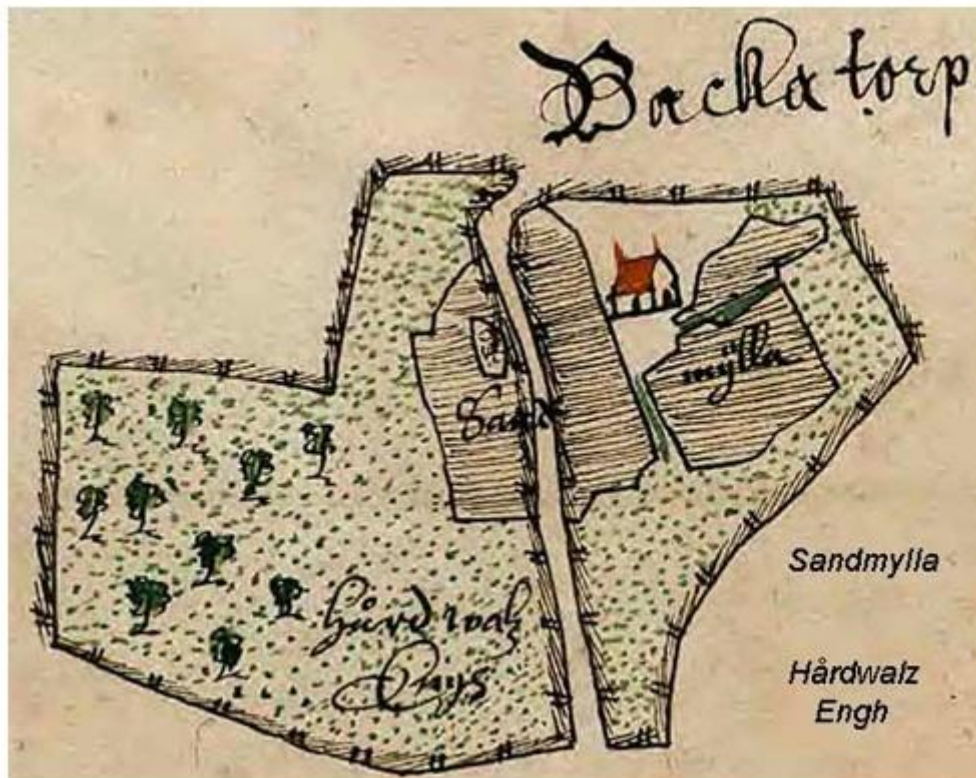 Backa torp
Sand
mÿlla
hård walz
Engs
Sandmylla
Hårdwalz
Engh